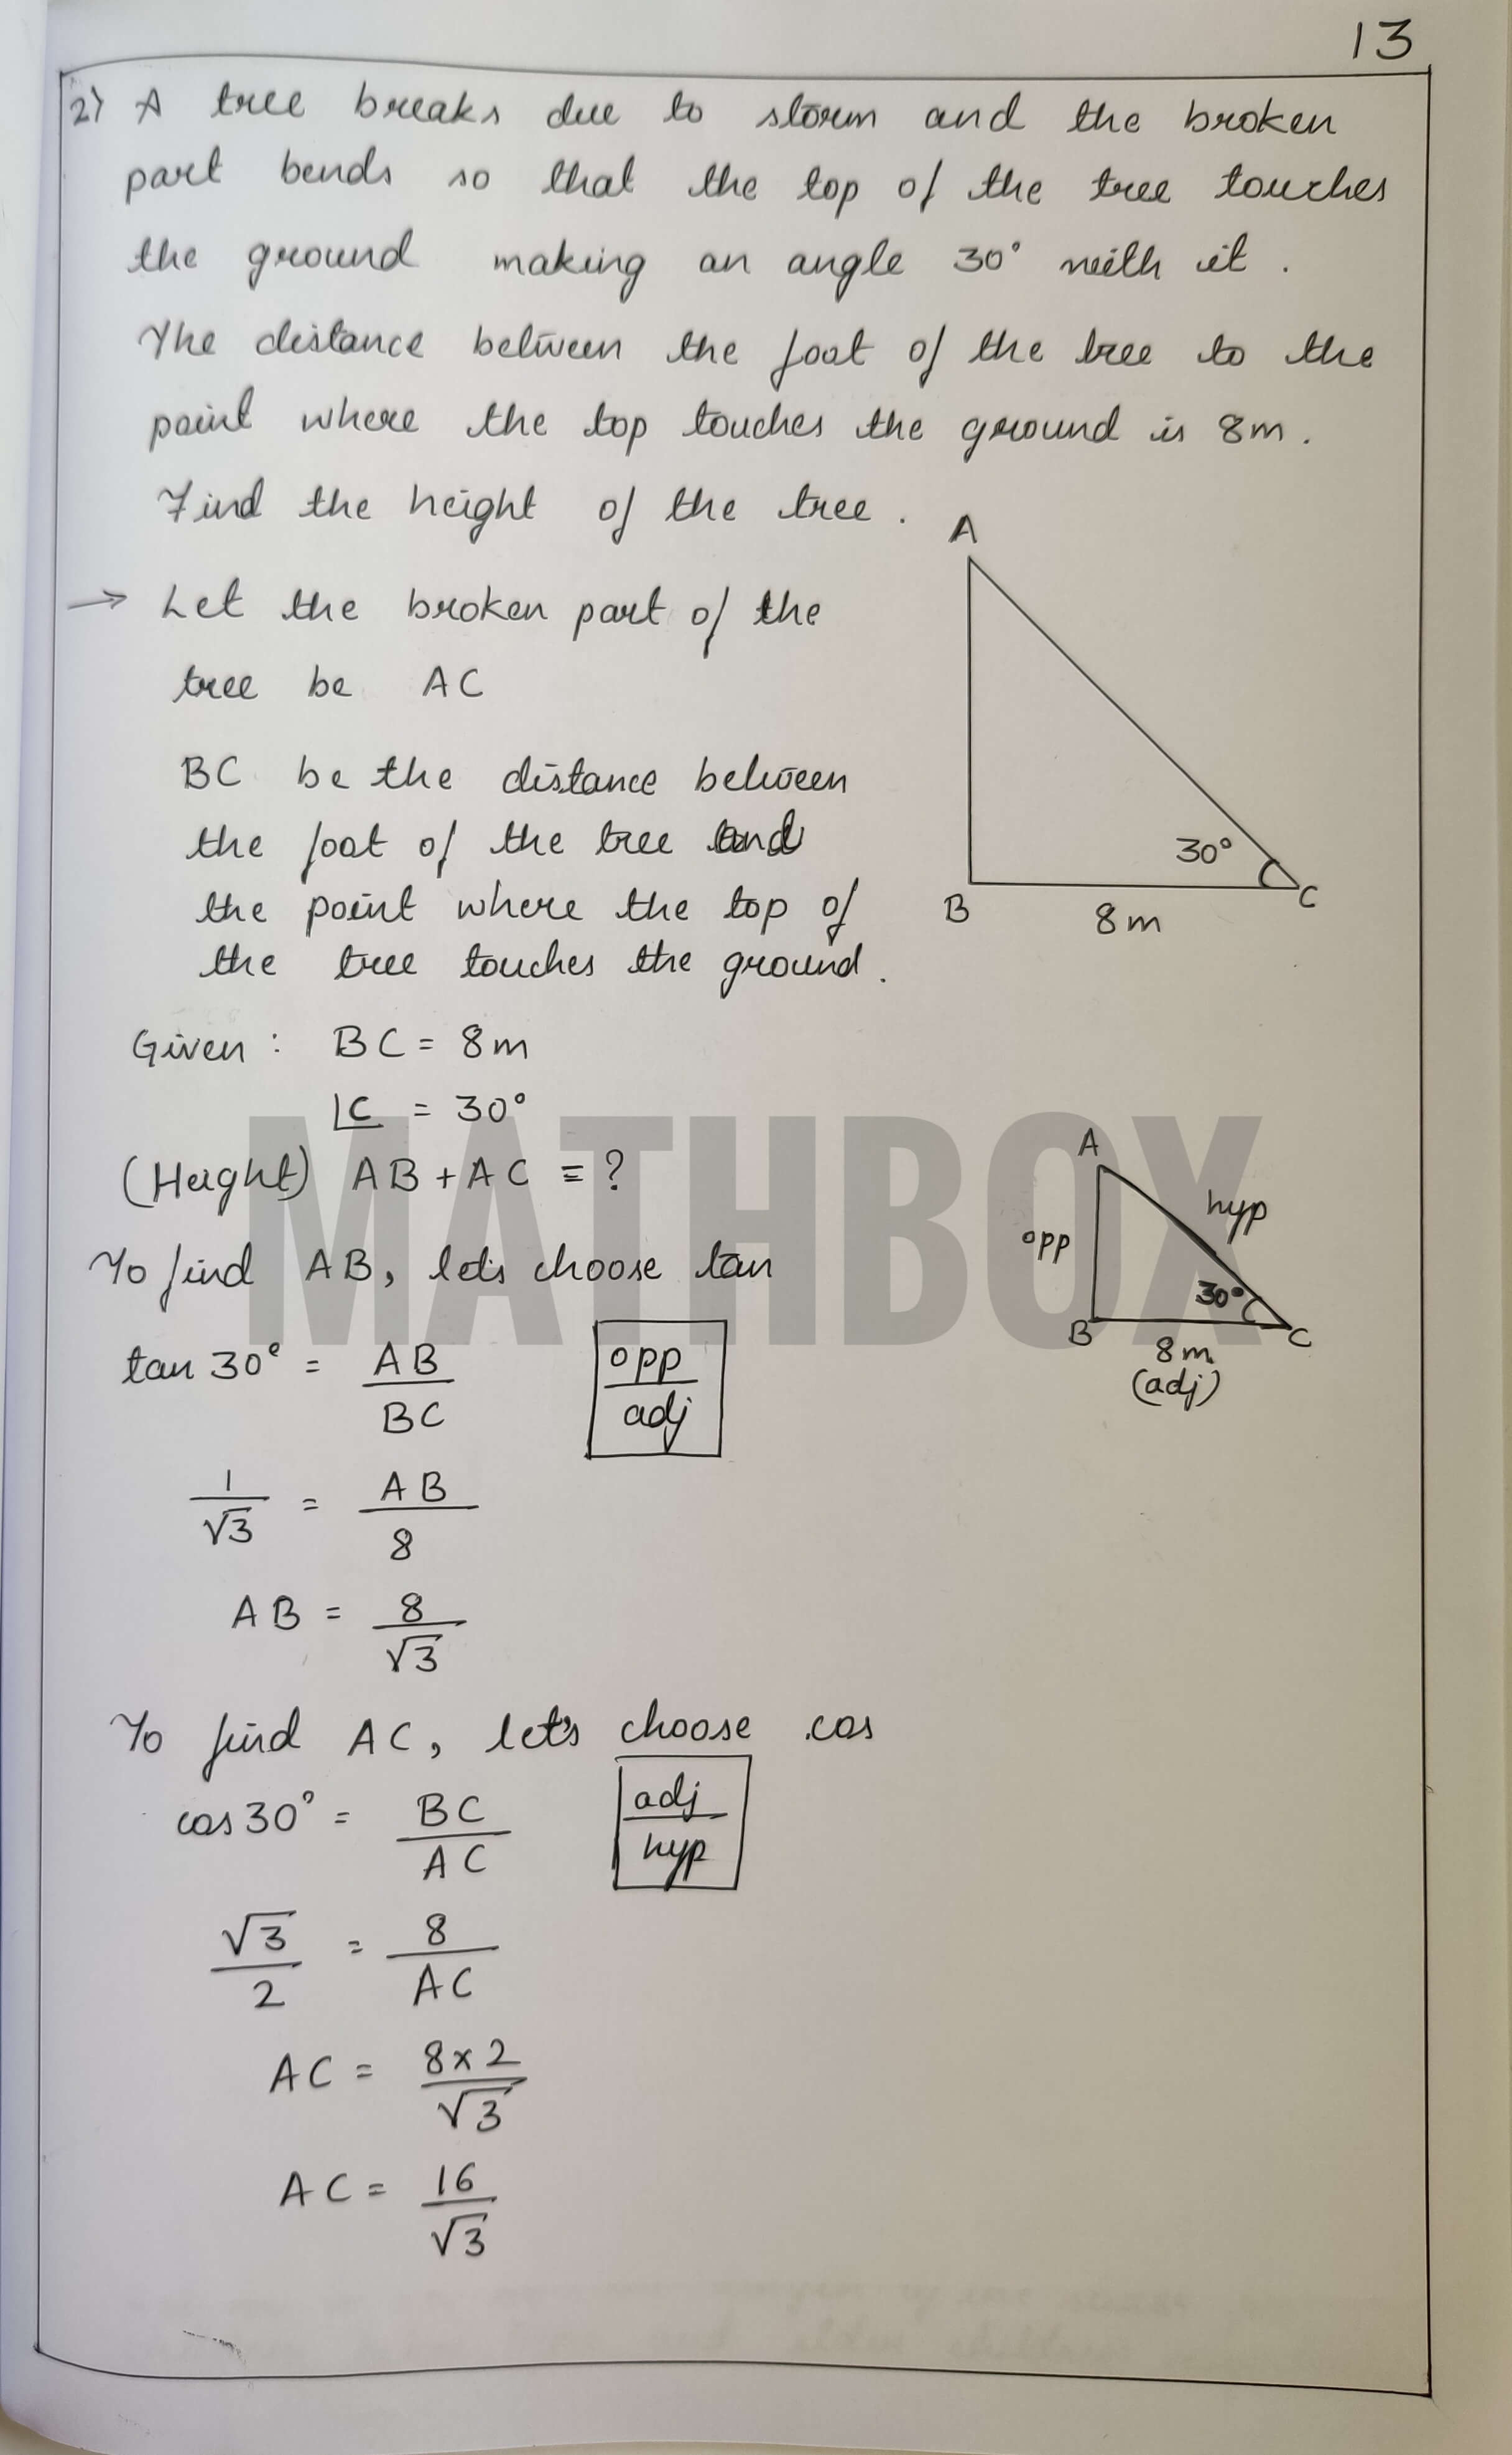 13
2) A tree breaks due to storm and the broken
part bends so that the top of the tree touches
the ground making an angle 30° with it.
The distance between the foot of the tree to the
point where the top touches the ground is 8m.
Find the height of the tree.
→ Let the broken part of the
tree be AC
BC be the distance between
the foot of the tree and
the point where the top of
the tree touches the ground.
A
30°
B
8m
C
Given: BC = 8m
∠C = 30°
(Height) AB + AC = ?
To find AB, let's choose tan
A
opp
hyp
30°
B
C
8m
(adj)
tan 30° = AB/BC
opp/adj
1/√3 = AB/8
AB = 8/√3
To find AC, let's choose cos
cos 30° = BC/AC
adj/hyp
√3/2 = 8/AC
AC = 8×2/√3
AC = 16/√3
MATHBOX